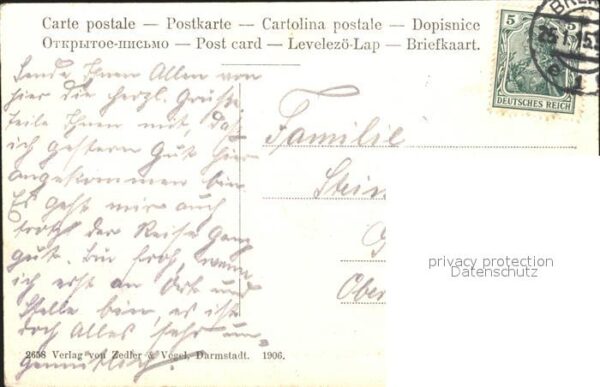 Carte postale — Postkarte — Cartolina postale — Dopisnice
Открытое-письмо — Post card — Levelező-Lap — Briefkaart.
5 5
DEUTSCHES REICH
Sende Ihnen Allen von
hier die herzl. Grüße,
teile Ihnen mit, daß
ich gestern Gut hier
angekommen bin.
Es geht mir auch
trotz der Reise ganz
gut. Bin froh, wenn
ich erst an Ort und
Stelle bin, es ist
doch Alles sehr un-
gemütlich.
Familie
Stein
Ober
privacy protection
Datenschutz
2658 Verlag von Zedler & Vogel, Darmstadt. 1906.